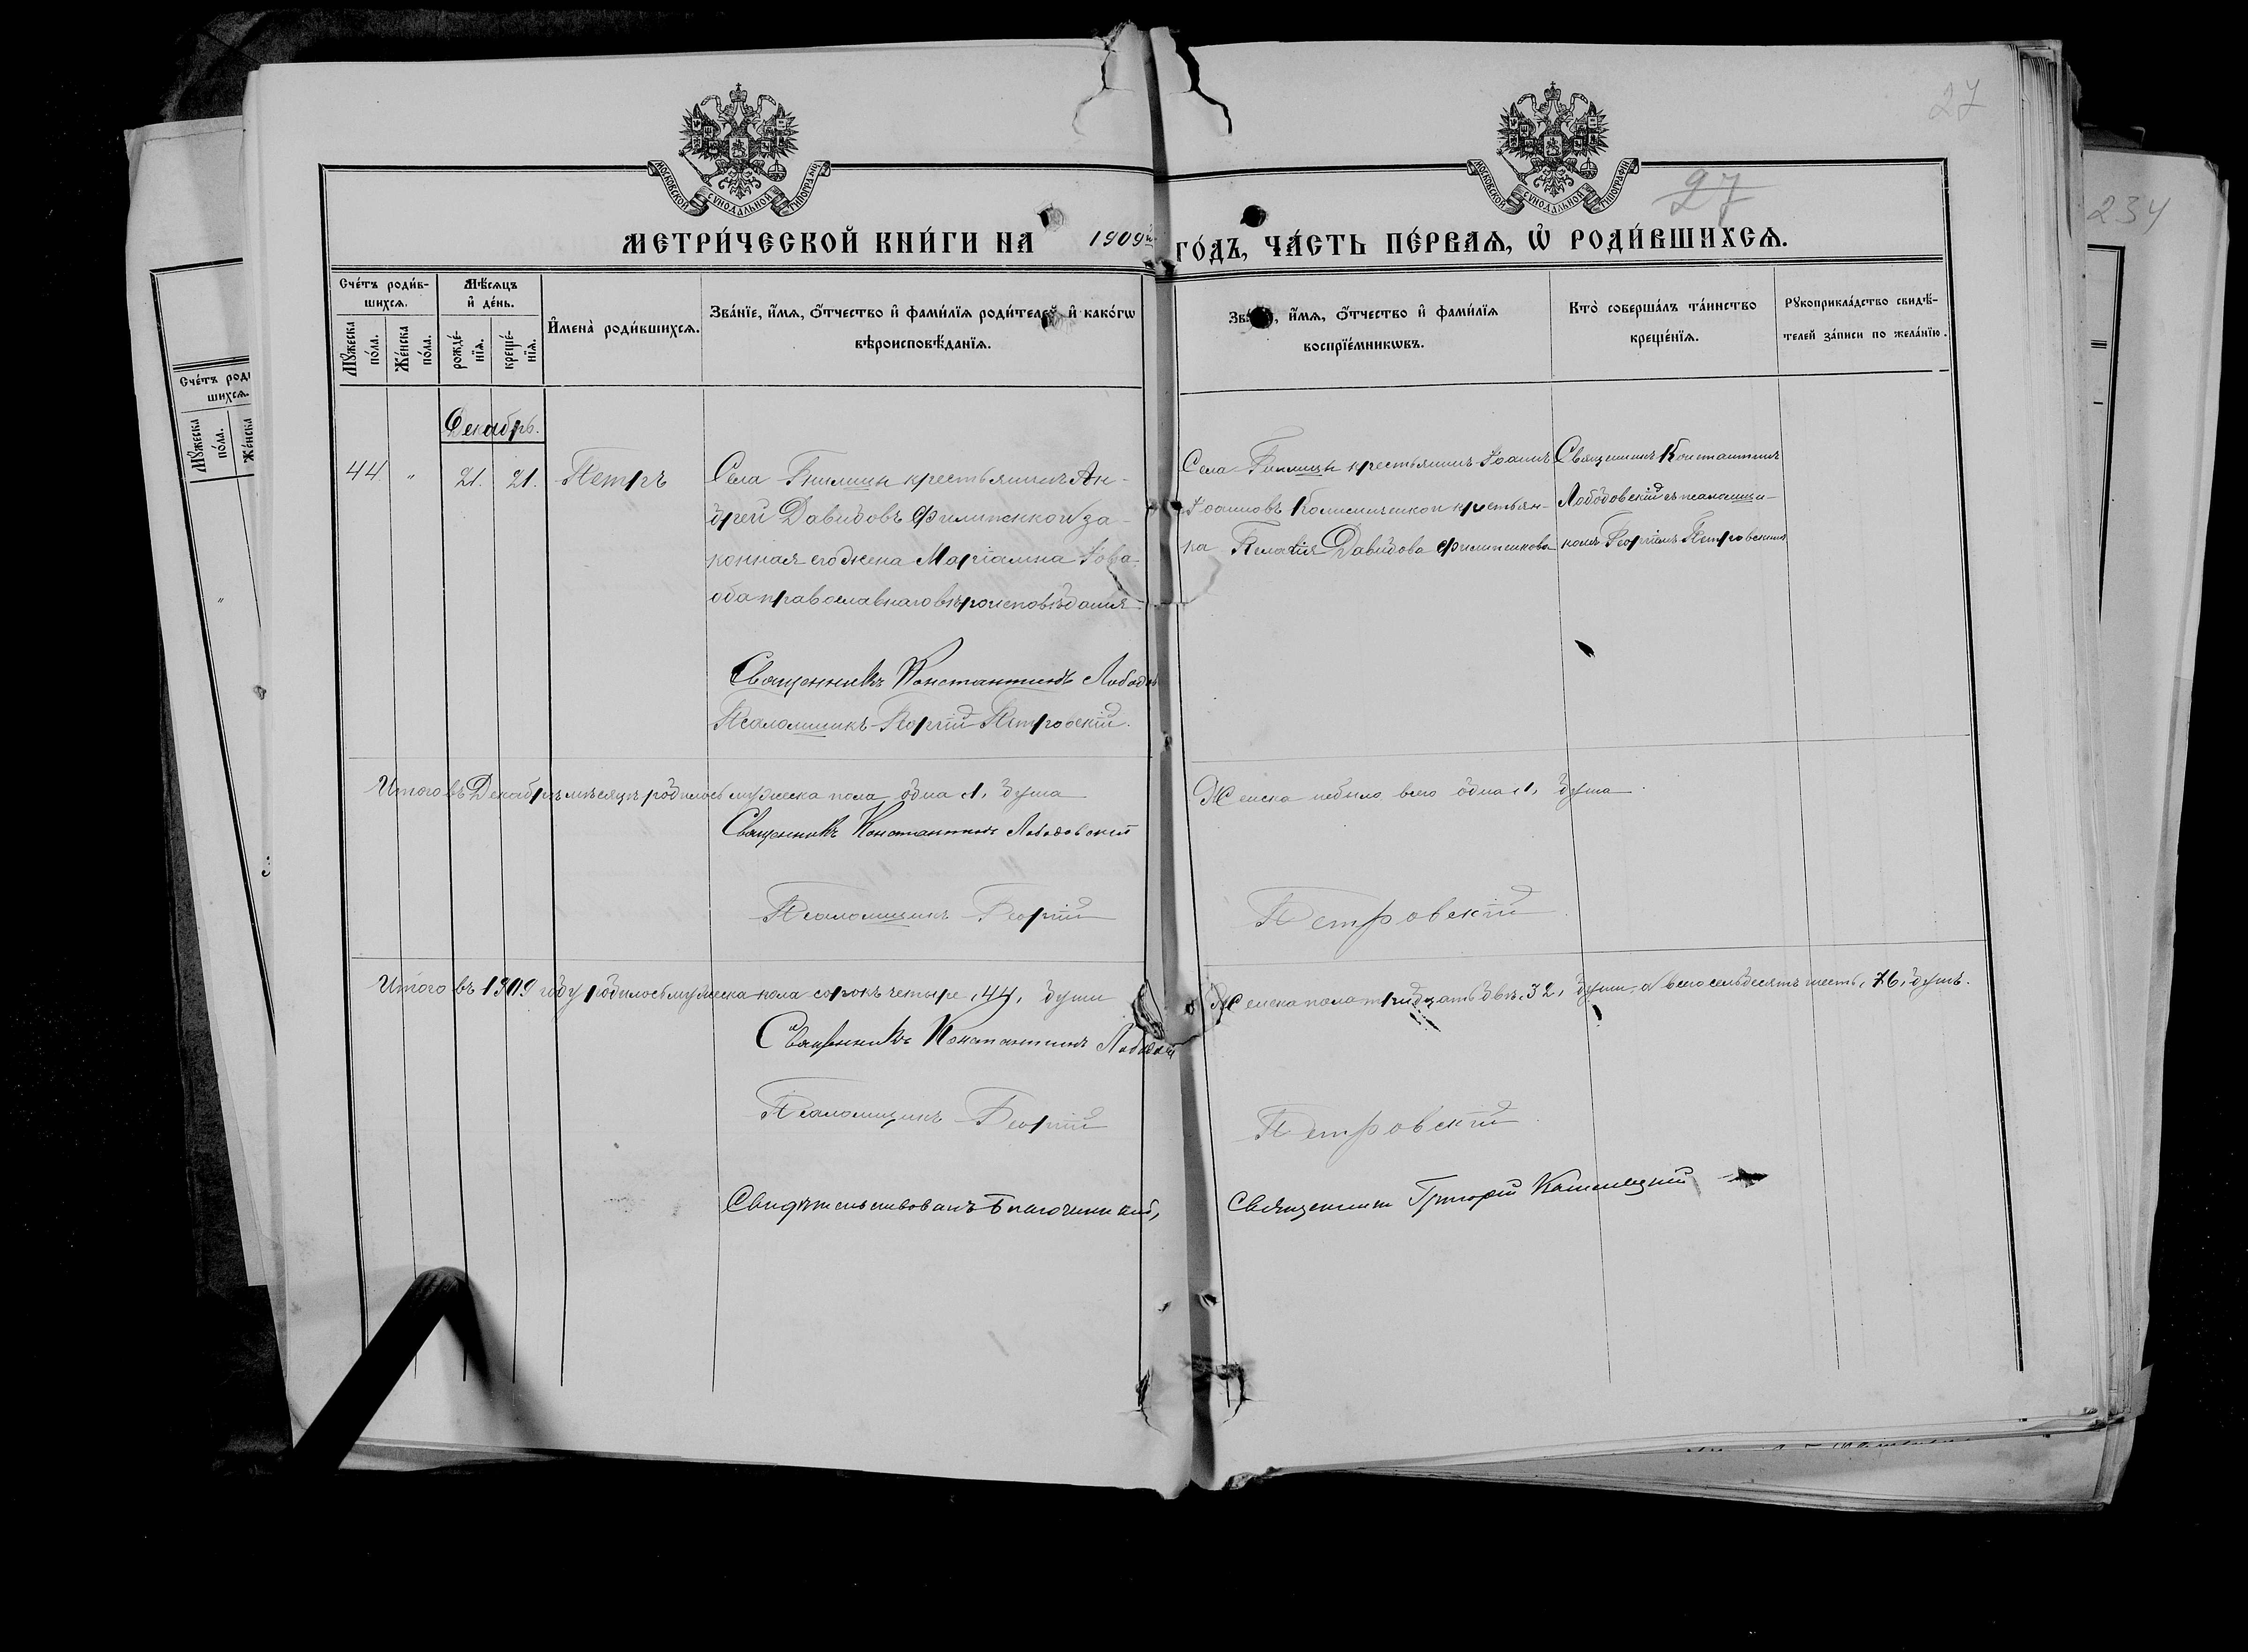 27
МОСКОВСКОЙ СѴНОДАЛЬНОЙ ТИПОГРАФІИ
МОСКОВСКОЙ СѴНОДАЛЬНОЙ ТИПОГРАФІИ
27
234
МЕТРИ́ЧЕСКОЙ КНИ́ГИ НА 1909й ГО́ДЪ, ЧА́СТЬ ПЕ́РВАѦ, Ѽ РОДИ́ВШИХСѦ.
Сче́тъ роди́в-
шихсѧ.
Мꙋ́жеска
по́ла.
Же́нска
по́ла.
Мѣ́сѧцъ
и҆ де́нь.
рожде́-
нїѧ.
креще́-
нїѧ.
И҆мена̀ роди́вшихсѧ.
Зва́нїе, и҆́мѧ, ѻ҆́тчество и҆ фами́лїѧ роди́телей и҆ како́гѡ
вѣроисповѣ́данїѧ.
и҆́мѧ, ѻ҆́тчество и҆ фами́лїѧ
воспрїе́мникѡвъ.
Кто̀ соверша́лъ та́инство
креще́нїѧ.
Рꙋкоприкла́дство свидѣ́-
телей за́писи по жела́нїю.
Декабрь.
44. " 21. 21. Петръ
Села Гнилицы крестьянинъ Ан-
дрей Давидовъ Филипенко и за-
конная его жена Маріамна
оба православнаго вѣроисповѣданія
Священникъ Константинъ
Псаломщикъ Георгій Петровскій.
Села Гнилицы крестьянинъ Іоаннъ
Іоанновъ крестьян-
ка Пелагія Давидова Филипенкова
Священникъ Константинъ
Лободовскій съ псаломщи-
комъ Георгіемъ Петровскимъ
Итого въ Декабрѣ мѣсяцѣ родилось мужеска пола одна 1, душа Женска не было всего одна 1, душа.
Священникъ Константинъ Лободовскій
Псаломщикъ Георгій Петровскій
Итого въ 1909 году родилось мужеска пола сорокъ четыре, 44, души Женска пола тридцать двѣ, 32, души, а всего семьдесятъ шесть, 76, душъ.
Священникъ Константинъ
Псаломщикъ Георгій Петровскій.
Священникъ Григорій
Сче́тъ
шихсѧ.
Мꙋ́жеска
по́ла.
Же́нска
"